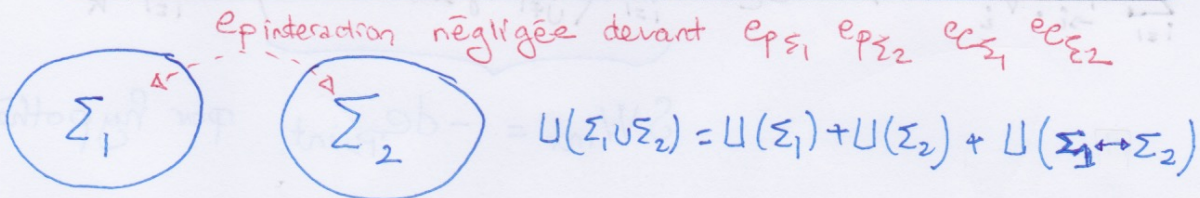 ep interaction négligée devant epΣ1 epΣ2 ecΣ1 ecΣ2
Σ1 Σ2 U(Σ1∪Σ2) = U(Σ1) + U(Σ2) + U(Σ1↔Σ2)